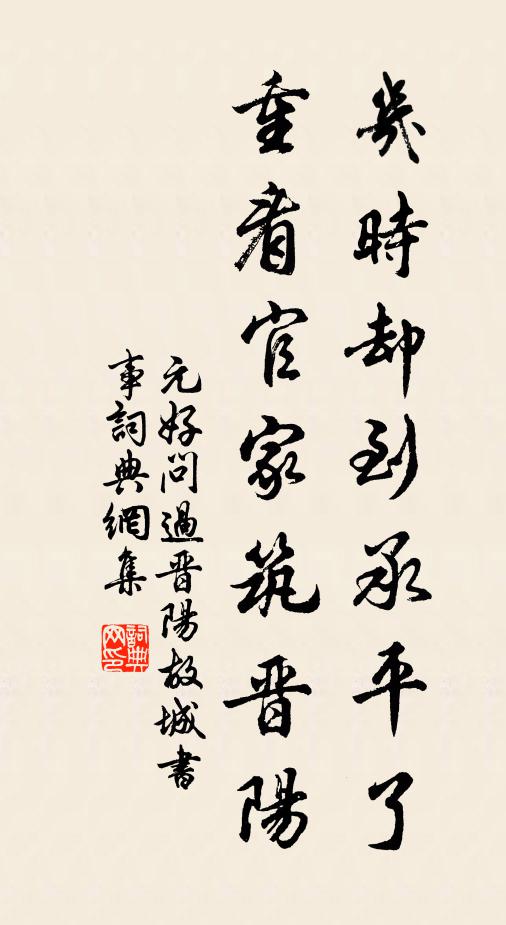 幾時却到承平了
重看官家筑晋陽
元好問過晋陽故城書
事詞典網集
詞典
网印